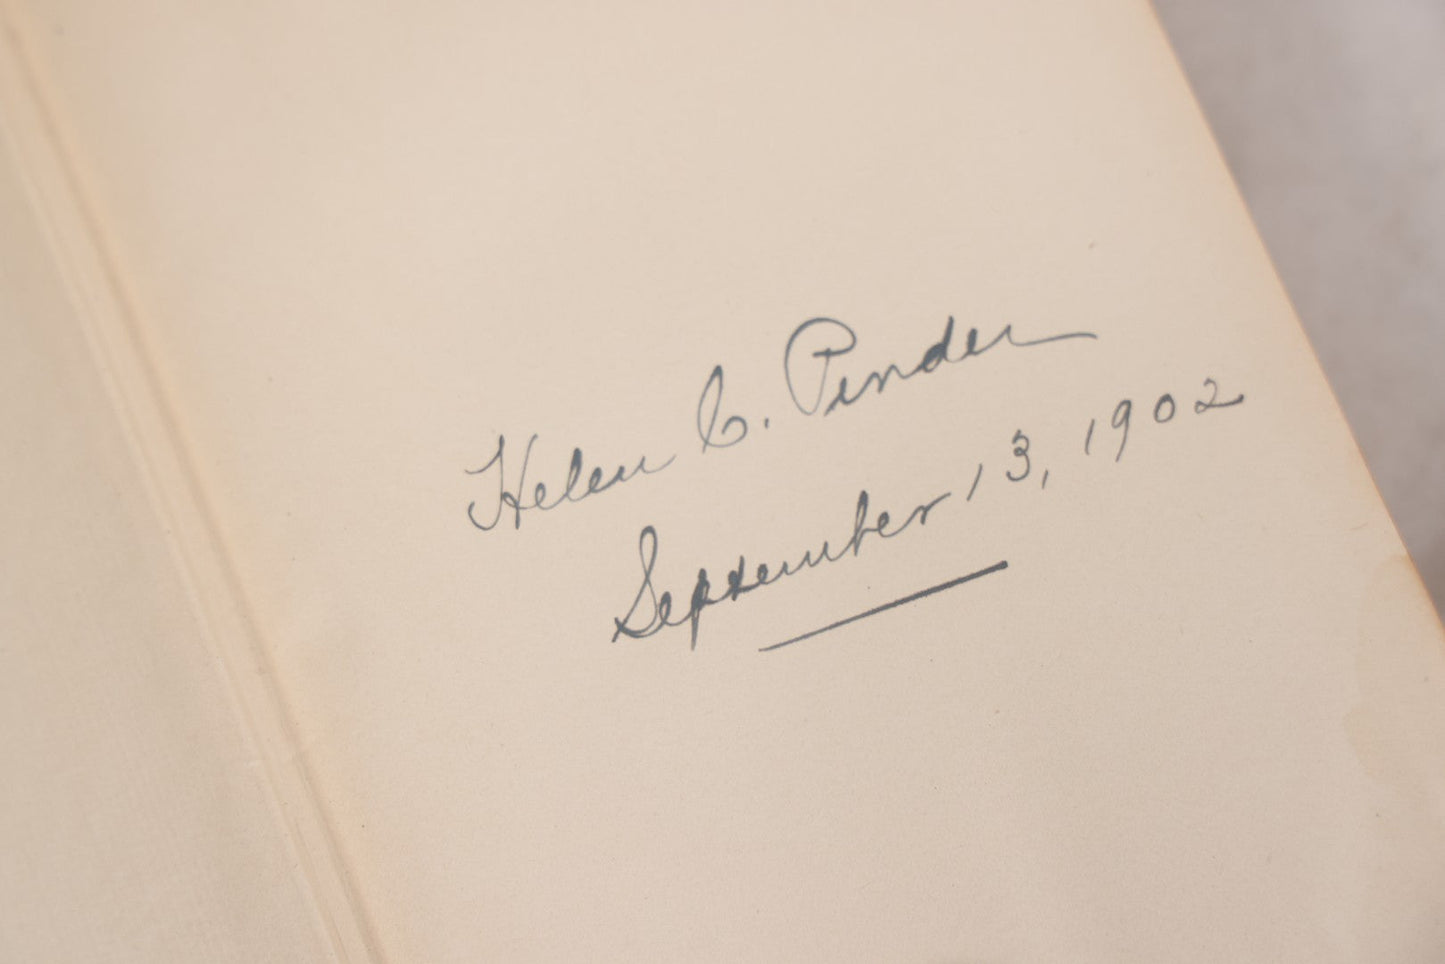 Helen C. Pinder
September 13, 1902